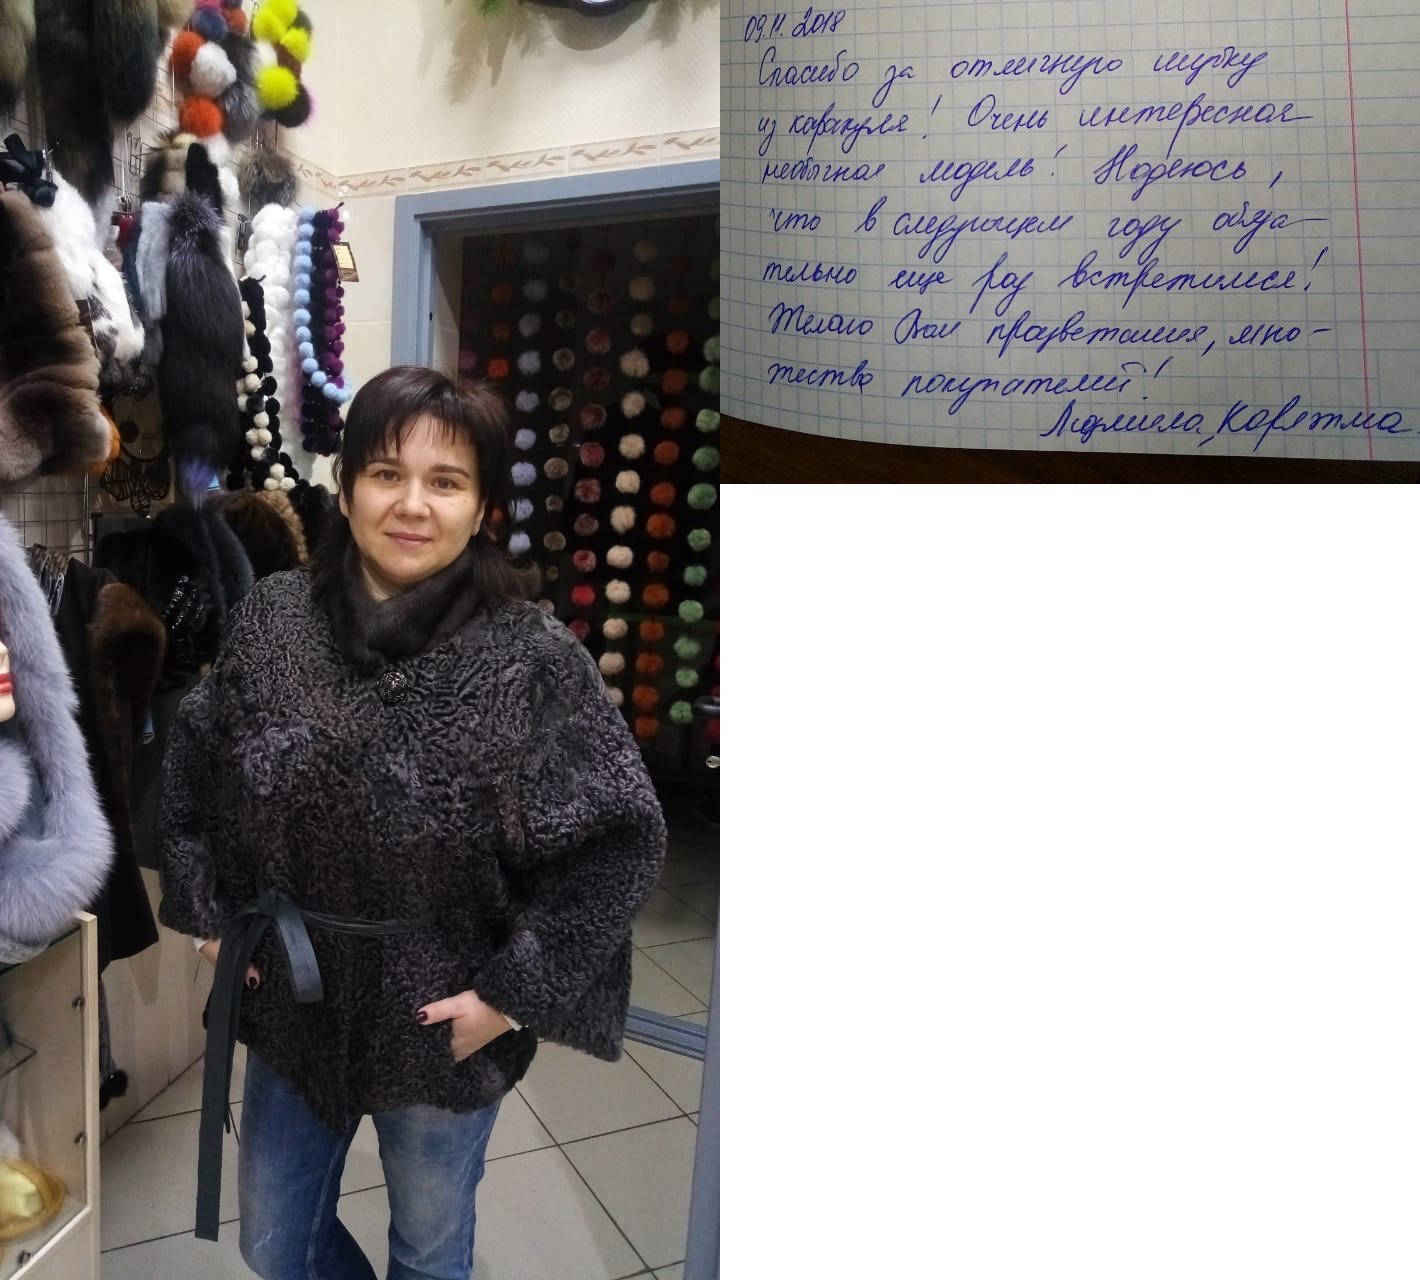 09.11.2018
Спасибо за отличную шубку
из каракуля! Очень интересная
необычная модель! Надеюсь,
что в следующем году обяза-
тельно еще раз встретимся!
Желаю Вам процветания, мно-
жество покупателей!
Людмила, Коряжма